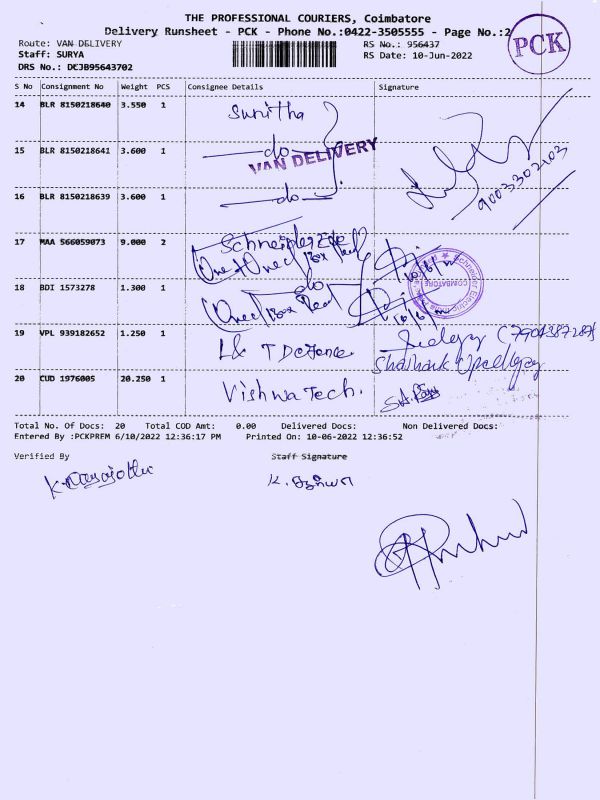 THE PROFESSIONAL COURIERS, Coimbatore
Delivery Runsheet - PCK - Phone No.:0422-3505555 - Page No.:2
PCK
Route: VAN DELIVERY
RS No.: 956437
Staff: SURYA
RS Date: 10-Jun-2022
DRS No.: DCJB95643702
S No Consignment No Weight PCS Consignee Details Signature
14 BLR 8150218640 3.550 1 Sunitha
15 BLR 8150218641 3.600 1 -do-
VAN DELIVERY
16 BLR 8150218639 3.600 1 -do-
9003302103
17 MAA 566059073 9.000 2 Schneider
18 BDI 1573278 1.300 1 do
COIMBATORE
19 VPL 939182652 1.250 1 L & T Defence
Shashank
20 CUD 1976005 20.250 1 Vishwa Tech.
Total No. Of Docs: 20 Total COD Amt: 0.00 Delivered Docs: Non Delivered Docs:
Entered By :PCKPREM 6/10/2022 12:36:17 PM Printed On: 10-06-2022 12:36:52
Verified By Staff Signature